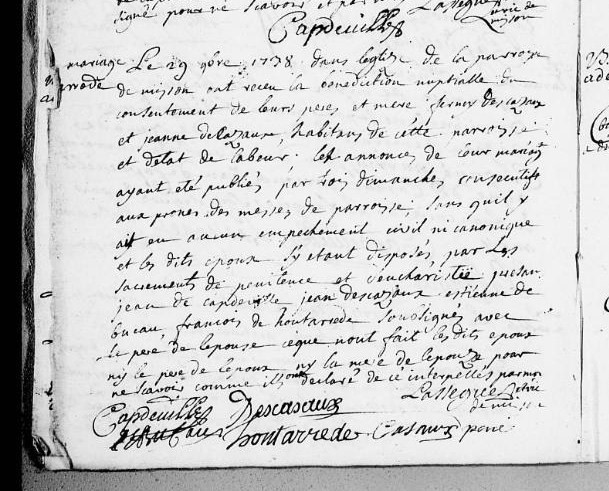 signé pour ne scavoir et par Lassegue
Capdeville
mariage Le 29 9bre 1738 dans leglize de la parroisse
de misson ont receu la benediction nuptialle du
consentement de leurs peres et mere descazaux
et jeanne de cazaux, habitans de cette parroisse
et detat de labeur. les annonces de leur mariage
ayant eté publiés par trois dimanches consecutifs
aux prones des messes de parroisse, sans quil y
ait eu aucun empechement civil ni canonique
et les dits epoux s'y etant disposés, par les
sacrements de penitence et d'eucharistie presan
jean de capdeville jean descazaux estienne de
bucau, francois de hontarrede soussignés avec
le pere de lepouse ceque nont fait les dits epoux
ny le pere de lepoux ny la mere de lepouze pour
ne scavoir comme ils ont declaré de ce interpellés par moy
Lassegue
Capdeuille Descasaux
hontarrede Casaux pere